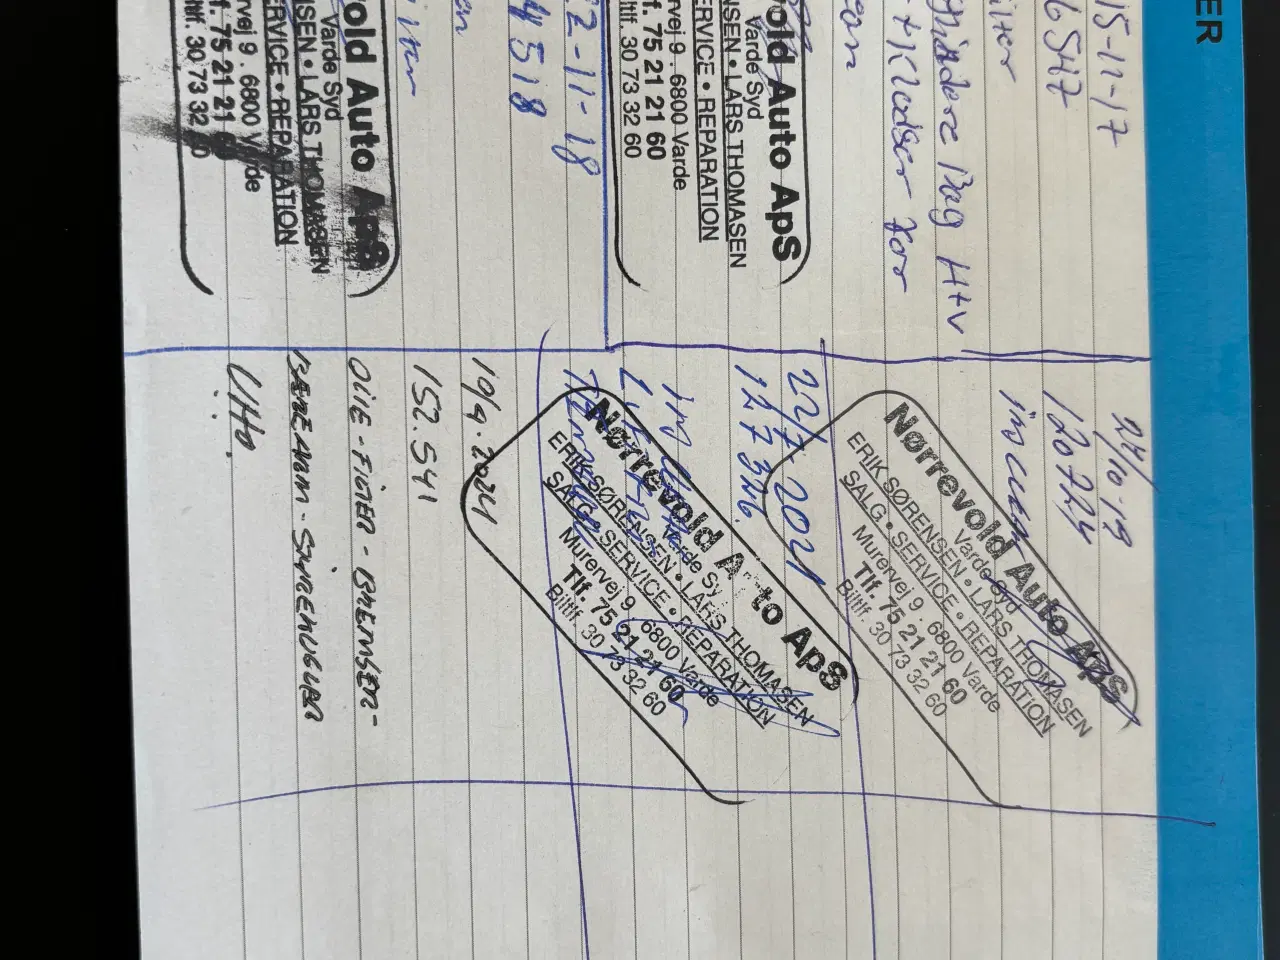 ER
15-11-17
6547
Hjulcylindere Bag H+v
+ Klodser For
old Auto ApS
Varde Syd
NSEN • LARS THOMASEN
ERVICE • REPARATION
rvej 9 . 6800 Varde
f. 75 21 21 60
iltlf. 30 73 32 60
2-11-18
4518
old Auto ApS
Varde Syd
NSEN • LARS THOMASEN
ERVICE • REPARATION
rvej 9 . 6800 Varde
f. 75 21 21 60
30 73 32 60
24/10-19
120724
Nørrevold Auto ApS
Varde Syd
ERIK SØRENSEN • LARS THOMASEN
SALG • SERVICE • REPARATION
Murervej 9 . 6800 Varde
Tlf. 75 21 21 60
Biltlf. 30 73 32 60
22/7-2021
127346.
Nørrevold Auto ApS
Varde Sy
ERIK SØRENSEN • LARS THOMASEN
SALG • SERVICE • REPARATION
Murervej 9 . 6800 Varde
Tlf. 75 21 21 60
Biltlf. 30 73 32 60
19/4.2024
152.541
OLIE-FILTER-BREMSER-
BÆREARM-STYREKUGLER
UHO.